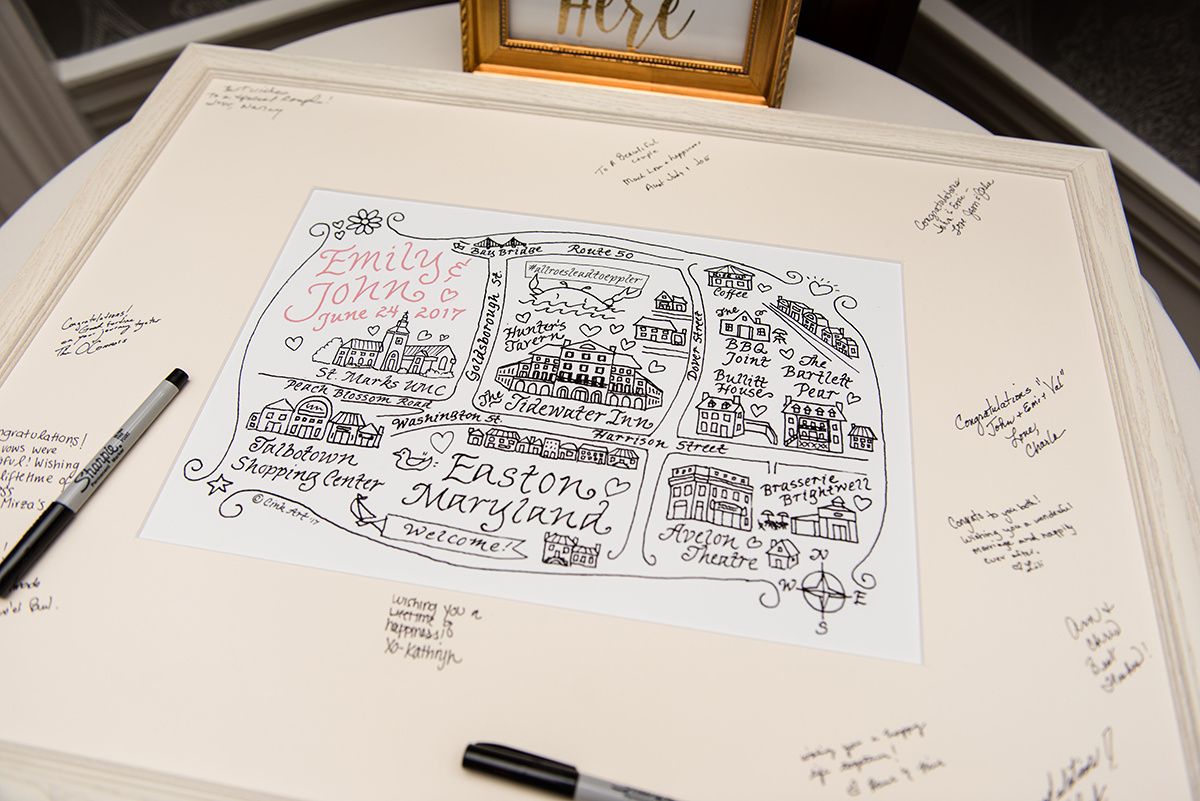 Here
Best wishes
to a special couple!
Love, Nancy
To A Beautiful
couple
Much Love & happiness
Aunt Judy & Joe
Congratulations
Love
Congratulations!
on your journey together
The O'Connors
Emily &
John
June 24 2017
Bay Bridge
Route 50
#allroesleadtoeppler
Goldsborough St
Hunter's
Tavern
The
Tidewater Inn
Dover Street
Coffee
The
BBQ
Joint
Bullitt
House
The
Bartlett
Pear
St Marks UMC
Peach Blossom Road
Washington St.
Harrison Street
Talbotown
Shopping Center
Easton
Maryland
Welcome!
© Cink Art '17
Avalon
Theatre
Brasserie
Brightwell
N
W
E
S
Congratulations
"John & Emi & Val"
Love,
Charla
Congrats to you both!
Wishing you a wonderful
marriage and happily
ever after.
ongratulations!
vows were
ful! Wishing
lifetime of
Mirza's
Sharpie
Wishing you a
lifetime of
happiness!
XO-Kathryn
Ann &
Chris
Best
Wishes!
wishing you a happy
life together!